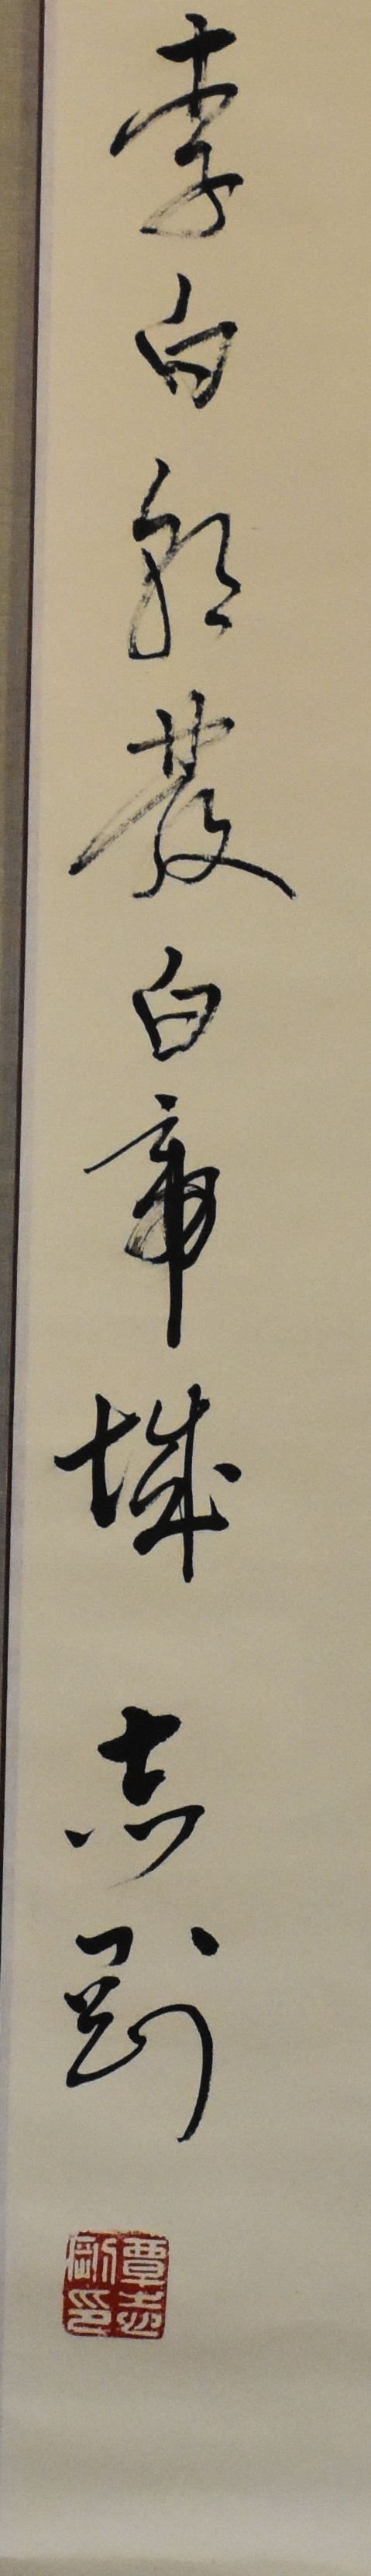 李白朝發白帝城 志剛
覃志剛印